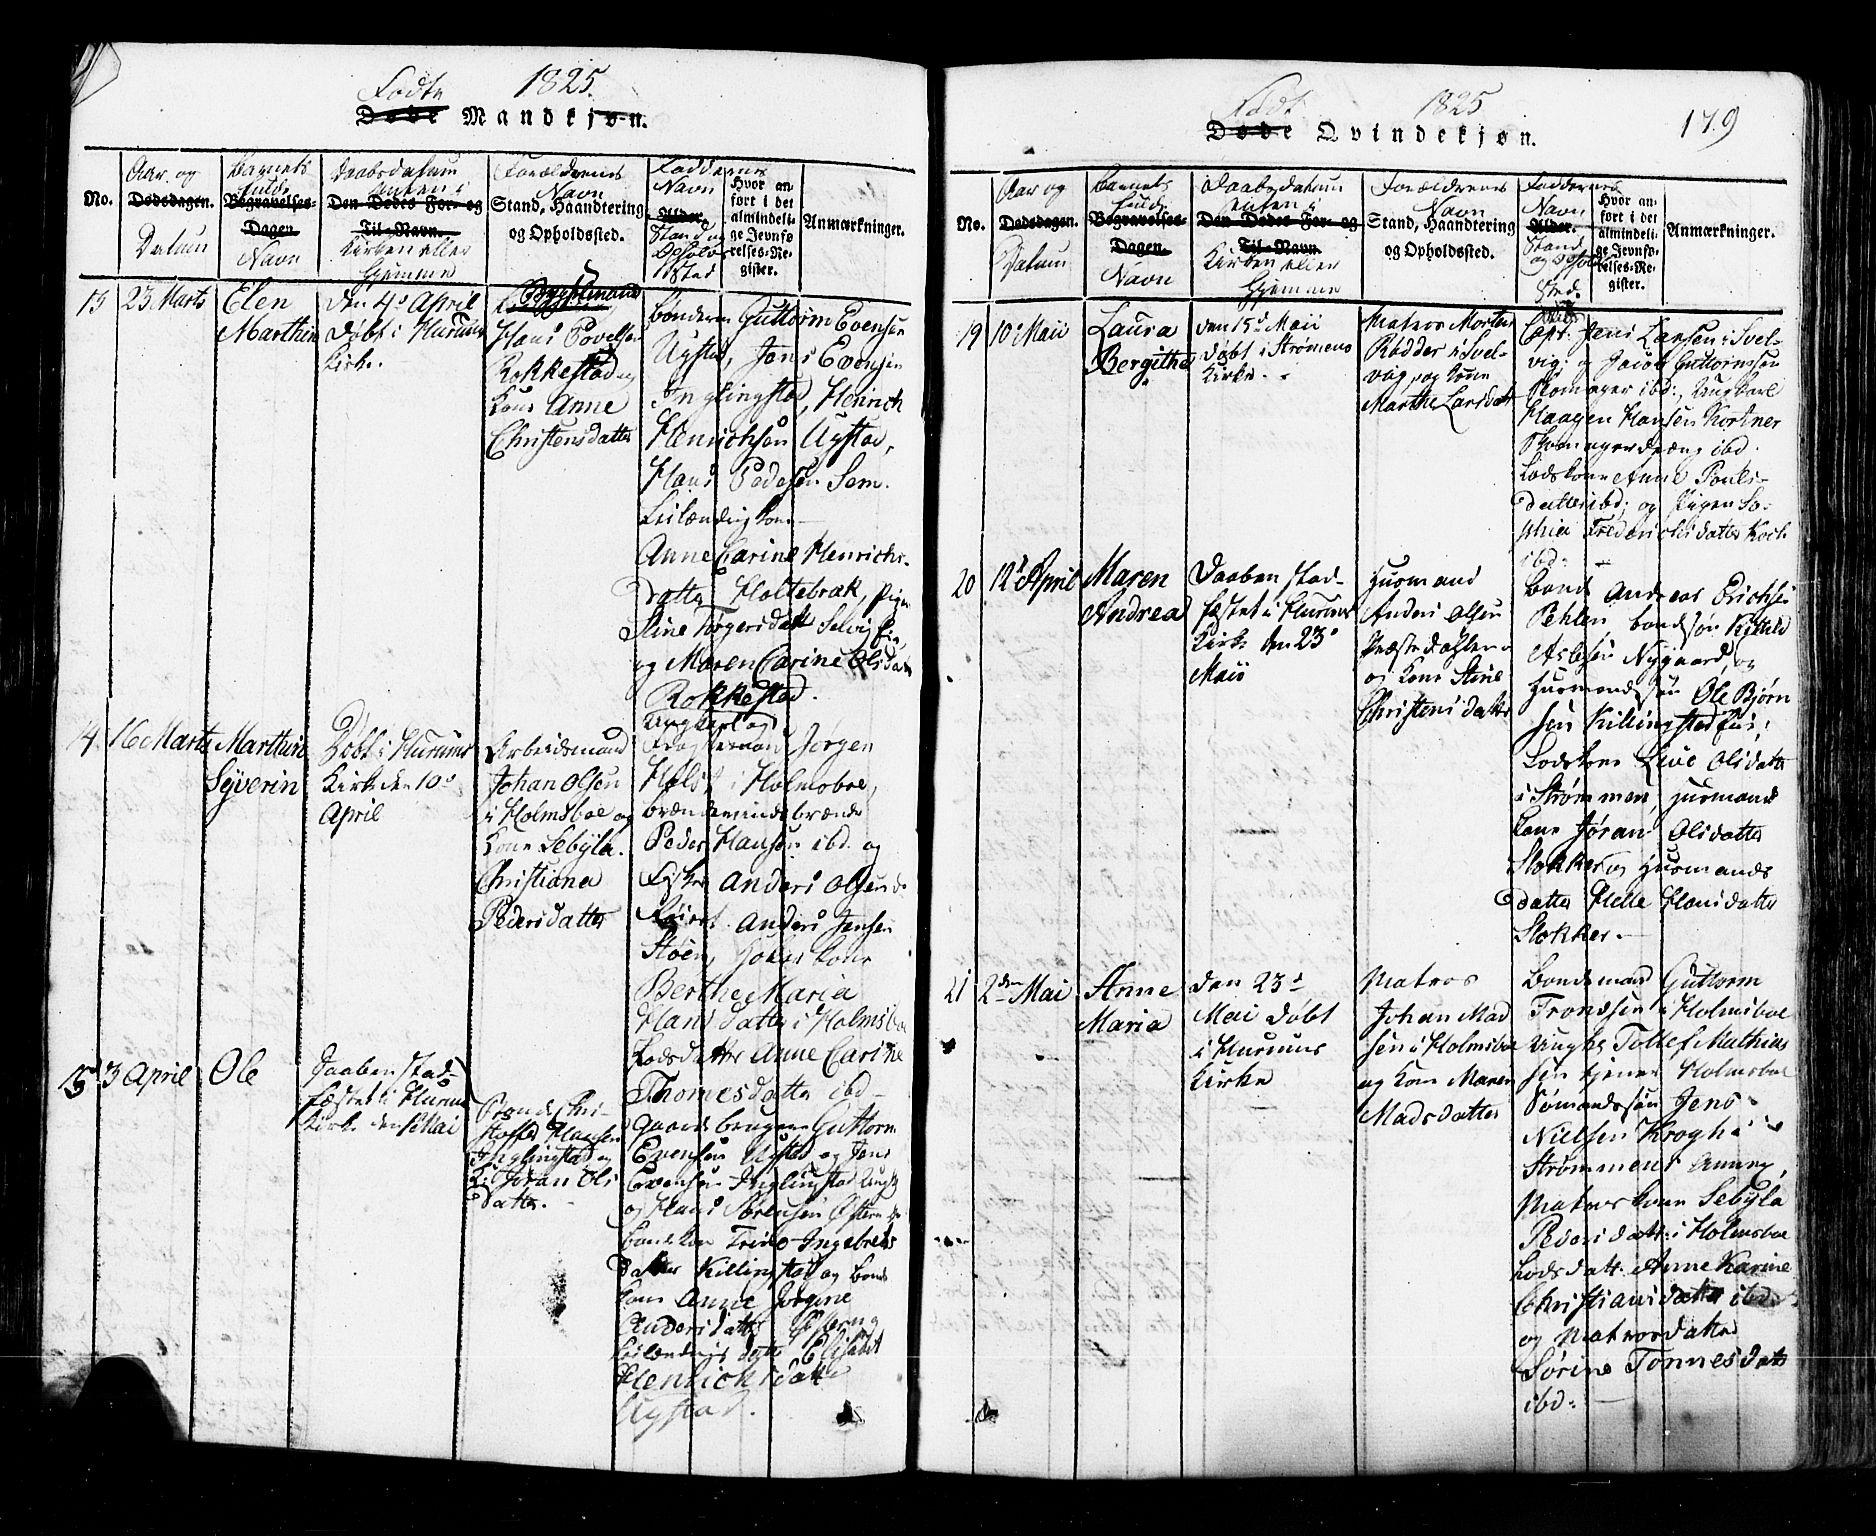 Födte 1825.
Døde Mandkjøn.
No.
Aar og
Dødsdagen.
Datum
Barnets
fulde
Begravelses-
Dagen
Navn
Daabsdatum
enten i
Den Dødes For- og
Til-Navn.
Kirken eller
Hjemme
Forældrenes
Navn
Stand, Haandtering
og Opholdssted.
Faddernes
Navn
Alder.
Stand og
Opholds
sted
Hvor an-
ført i det
almindeli-
ge Jevnfø-
relses-Re-
gister.
Anmærkninger.
13
23 Marts
Elen
Marthin
Den 4d April
Døbt i Hurums
Kirke.
Hans Povelsen
Rokkestad og
Kone Anne
Christensdatter
Bønderne Guttorm Evensen
Ugstad, Jens Evensen
Inglingstad, Henrich
Henrichsen Ugstad,
Hans Pedersen Sem.
Leilænding kone
Anne Carine Henrichs-
datter Holtebrak, Pigen
Stine Torgersdatt Selvig
og Maren Carine Olsdatter
Rokkestad.
14.
16 Marts
Marthin
Syverin
Døbt i Hurums
Kirke den 10d
April
Arbeidsmand
Johan Olsen
i Holmsboe og
Kone Sebylа
Christiana
Pedersdatter
Ungkarl og
Jørgen
Holst i Holmsboe,
brændevinsbrænder
Peder Hansen ibd. og
Fisker Anders Olsen
Anders Jensen
Støen,
Berthe Maria
Hansdatter i Holmsboe
Lodsdatter Anne Carine
Thomesdatter ibd
15
3 April
Ole
Daaben stad-
fæstet i Hurums
Kirke den Mai
Christoffer Hansen
Inglingstad og
K: Jøran Ols
datter.
Gaardbrugerne Guttorm
Evensen Ugstad og Jens
Evensen Inglingstad
og Hans Sørensen
bondekone Trine Ingebrets
datter Killingstad og bonde
kone Anne Jørgine
Andersdatter
Leilændings datter Elisabet
Henrichsdatter
Ugstad.
Födt 1825
Døde Qvindekjøn.
179
No.
Aar og
Dødsdagen.
Datum
Barnets
fulde
Begravelses-
Dagen.
Navn
Daabsdatum
enten i
Den Dødes For- og
Til-Navn.
Kirken eller
Hjemme
Forældrenes
Navn
Stand, Haandtering
og Opholdssted.
Faddernes
Navn
Alder.
Stand
og Opholds
Sted.
Hvor an-
ført i det
almindeli-
ge Jevnfø-
relses-Re-
gister.
Anmærkninger.
19
10 Maii
Laura
Bergitha
den 15d Maii
Døbt i Strømens
Kirke.
Matros Morten
Rødder i Svel-
vig, og Kone
Marthe Larsdatt
Capt. Jens Larsen i Svel-
vig, og Jacob Guttormsen
Skomager ibd:, Ungkarl
Haagen Hansen Kortner
Skomagerdreng ibd.
Lodskone Anne Pouls-
datter ibd; og Pigen So-
phia Frederichsdatter Koch
ibd:
20
12d April
Maren
Andrea
Daaben stad-
fæstet i Hurums
Kirke den 23d
Maii
Husmand
Anders Olsen
Præstedahlen
og Kone Stine
Christensdatter
Bonde Andreas Erichsen
Pehlen bondesøn Kittild
Aslesen Nygaard, og
Husmandssøn Ole Bjørn
sen Killingstad
Lodskone Live Olsdatter
i Strømmen, husmands
Kone Jøran Olsdatter
Slokker og Husmands
datter Helle Hansdatter
Slokker.
21
2den Mai
Anne
Maria
den 23d
Mai Døbt
i Hurums
Kirke
Matros
Johan Mad
sen i Holmsboe
og Kone Maren
Madsdatter
Bondemand Guttorm
Trondsen i Holmsboe
Tollef Mathias
sen tjener Holmsboe
Sømandssøn Jens
Nielsen Krogh i
Strømmens Annex,
Matroskone Sebyla
Pedersdatt: i Holmsboe
Lodsdatt: Anne Karine
Christiansdatter ibd:
og Matrosdatter
Sørine Tønnesdatt
ibd: